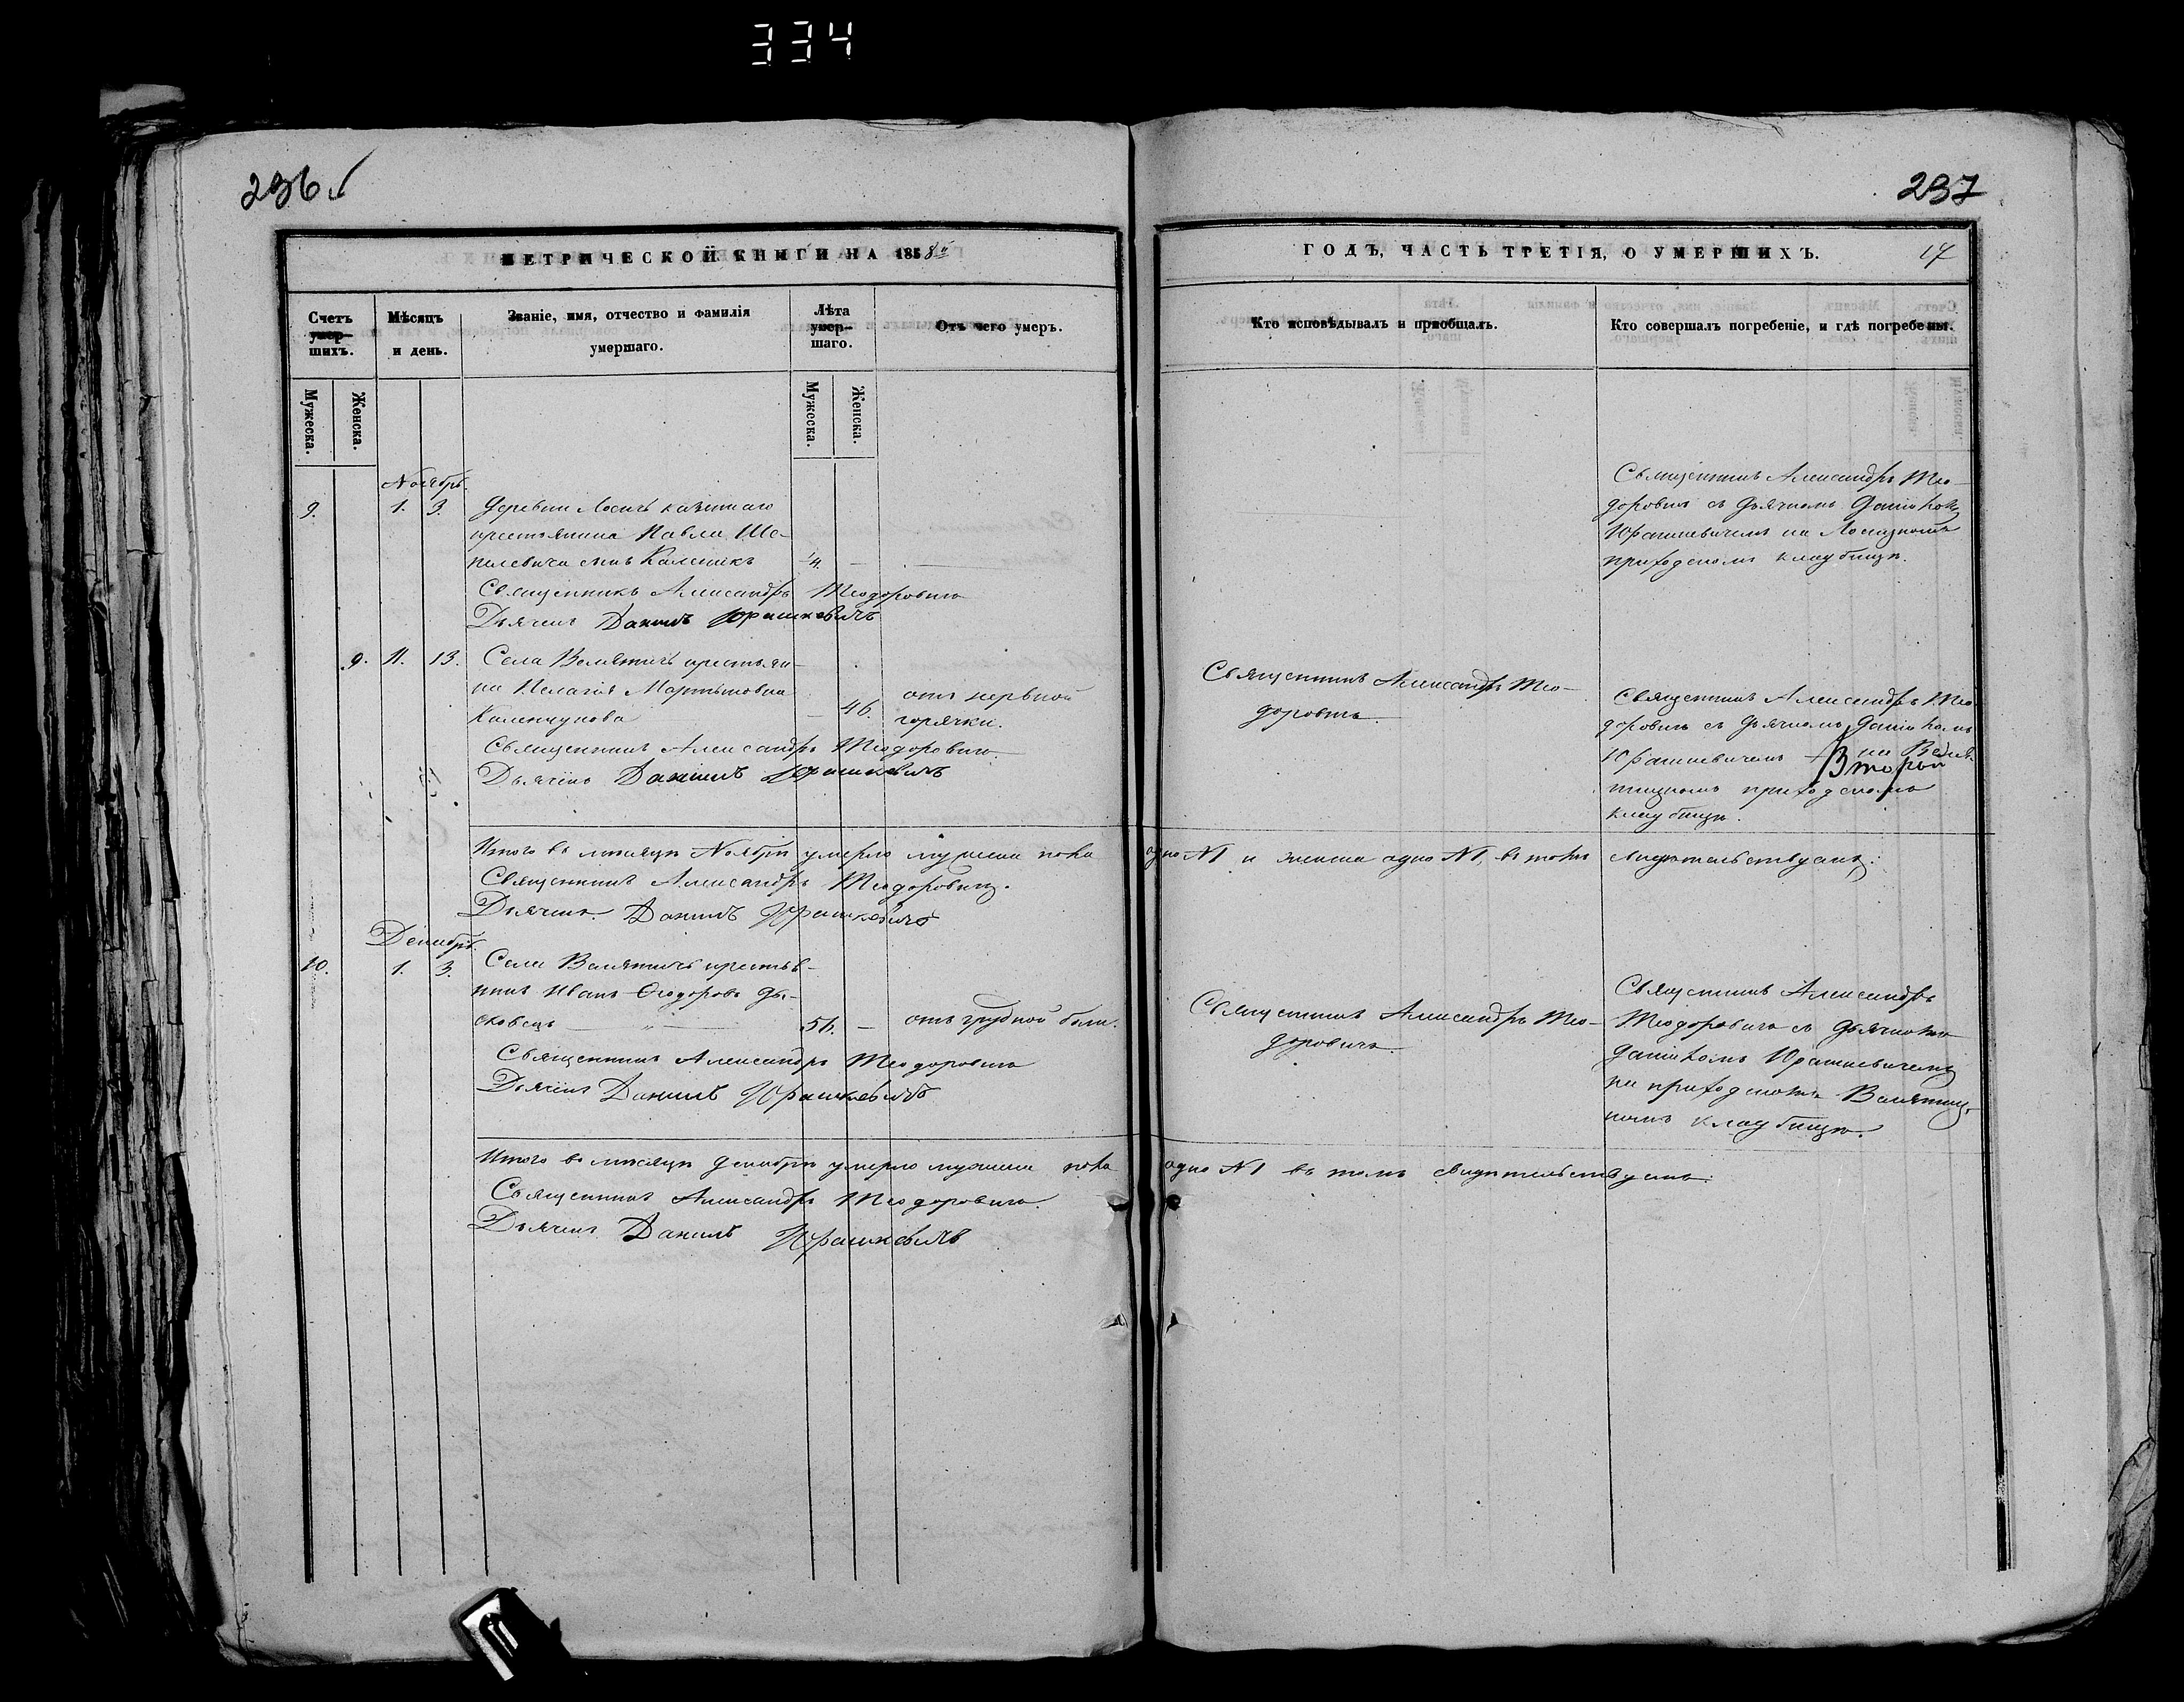 334
236
237
МЕТРИЧЕСКОЙ КНИГИ НА 1858й
ГОДЪ, ЧАСТЬ ТРЕТІЯ, О УМЕРШИХЪ.
17
Счетъ умер-шихъ.
Мѣсяцъ и день.
Званіе, имя, отчество и фамилія умершаго.
Лѣта умер-шаго.
Отъ чего умеръ.
Кто исповѣдывалъ и пріобщалъ.
Кто совершалъ погребеніе, и гдѣ погребены.
Мужеска.
Женска.
Мужеска.
Женска.
Ноябрь.
9. 1. 3. Деревни Лосичъ казеннаго
крестьянина Павла Ше-
пелевича сынъ
Священникъ Александръ Теодоровичъ
Дьячекъ Данилъ Юрашкевичъ
Священникъ Александръ Тео-
доровичъ съ дьячкомъ Даніиломъ
Юрашкевичемъ на
приходскомъ кладбищѣ.
9. 11. 13. Села Велятичъ крестьян-
ка Пелагія Мартиновна
46. отъ нервной
горячки.
Священникъ Александръ Теодоровичъ
Дьячекъ Данилъ Юрашкевичъ
Священникъ Александръ Тео-
доровичъ.
Священникъ Александръ Тео-
доровичъ съ дьячкомъ Даніиломъ
Юрашкевичемъ на Веля-
тицкомъ приходскомъ
кладбищѣ.
Итого въ мѣсяцѣ Ноябрѣ умерло мужеска пола одно №1 и женска одно №1, въ томъ свидѣтельствуемъ:
Священникъ Александръ Теодоровичъ.
Дьячекъ Данилъ Юрашкевичъ
Декабрь.
10. 1. 3. Села Велятичъ крестья-
нинъ Иванъ Ѳеодоровъ Ды-
сковецъ 56. — отъ грудной боли.
Священникъ Александръ Теодоровичъ
Дьячекъ Данилъ Юрашкевичъ
Священникъ Александръ Тео-
доровичъ.
Священникъ Александръ
Теодоровичъ съ дьячкомъ
Даніиломъ Юрашкевичемъ
на приходскомъ Велятиц-
комъ кладбищѣ.
Итого въ мѣсяцѣ Декабрѣ умерло мужеска пола одно №1 въ томъ свидѣтельствуемъ:
Священникъ Александръ Теодоровичъ.
Дьячекъ Данилъ Юрашкевичъ